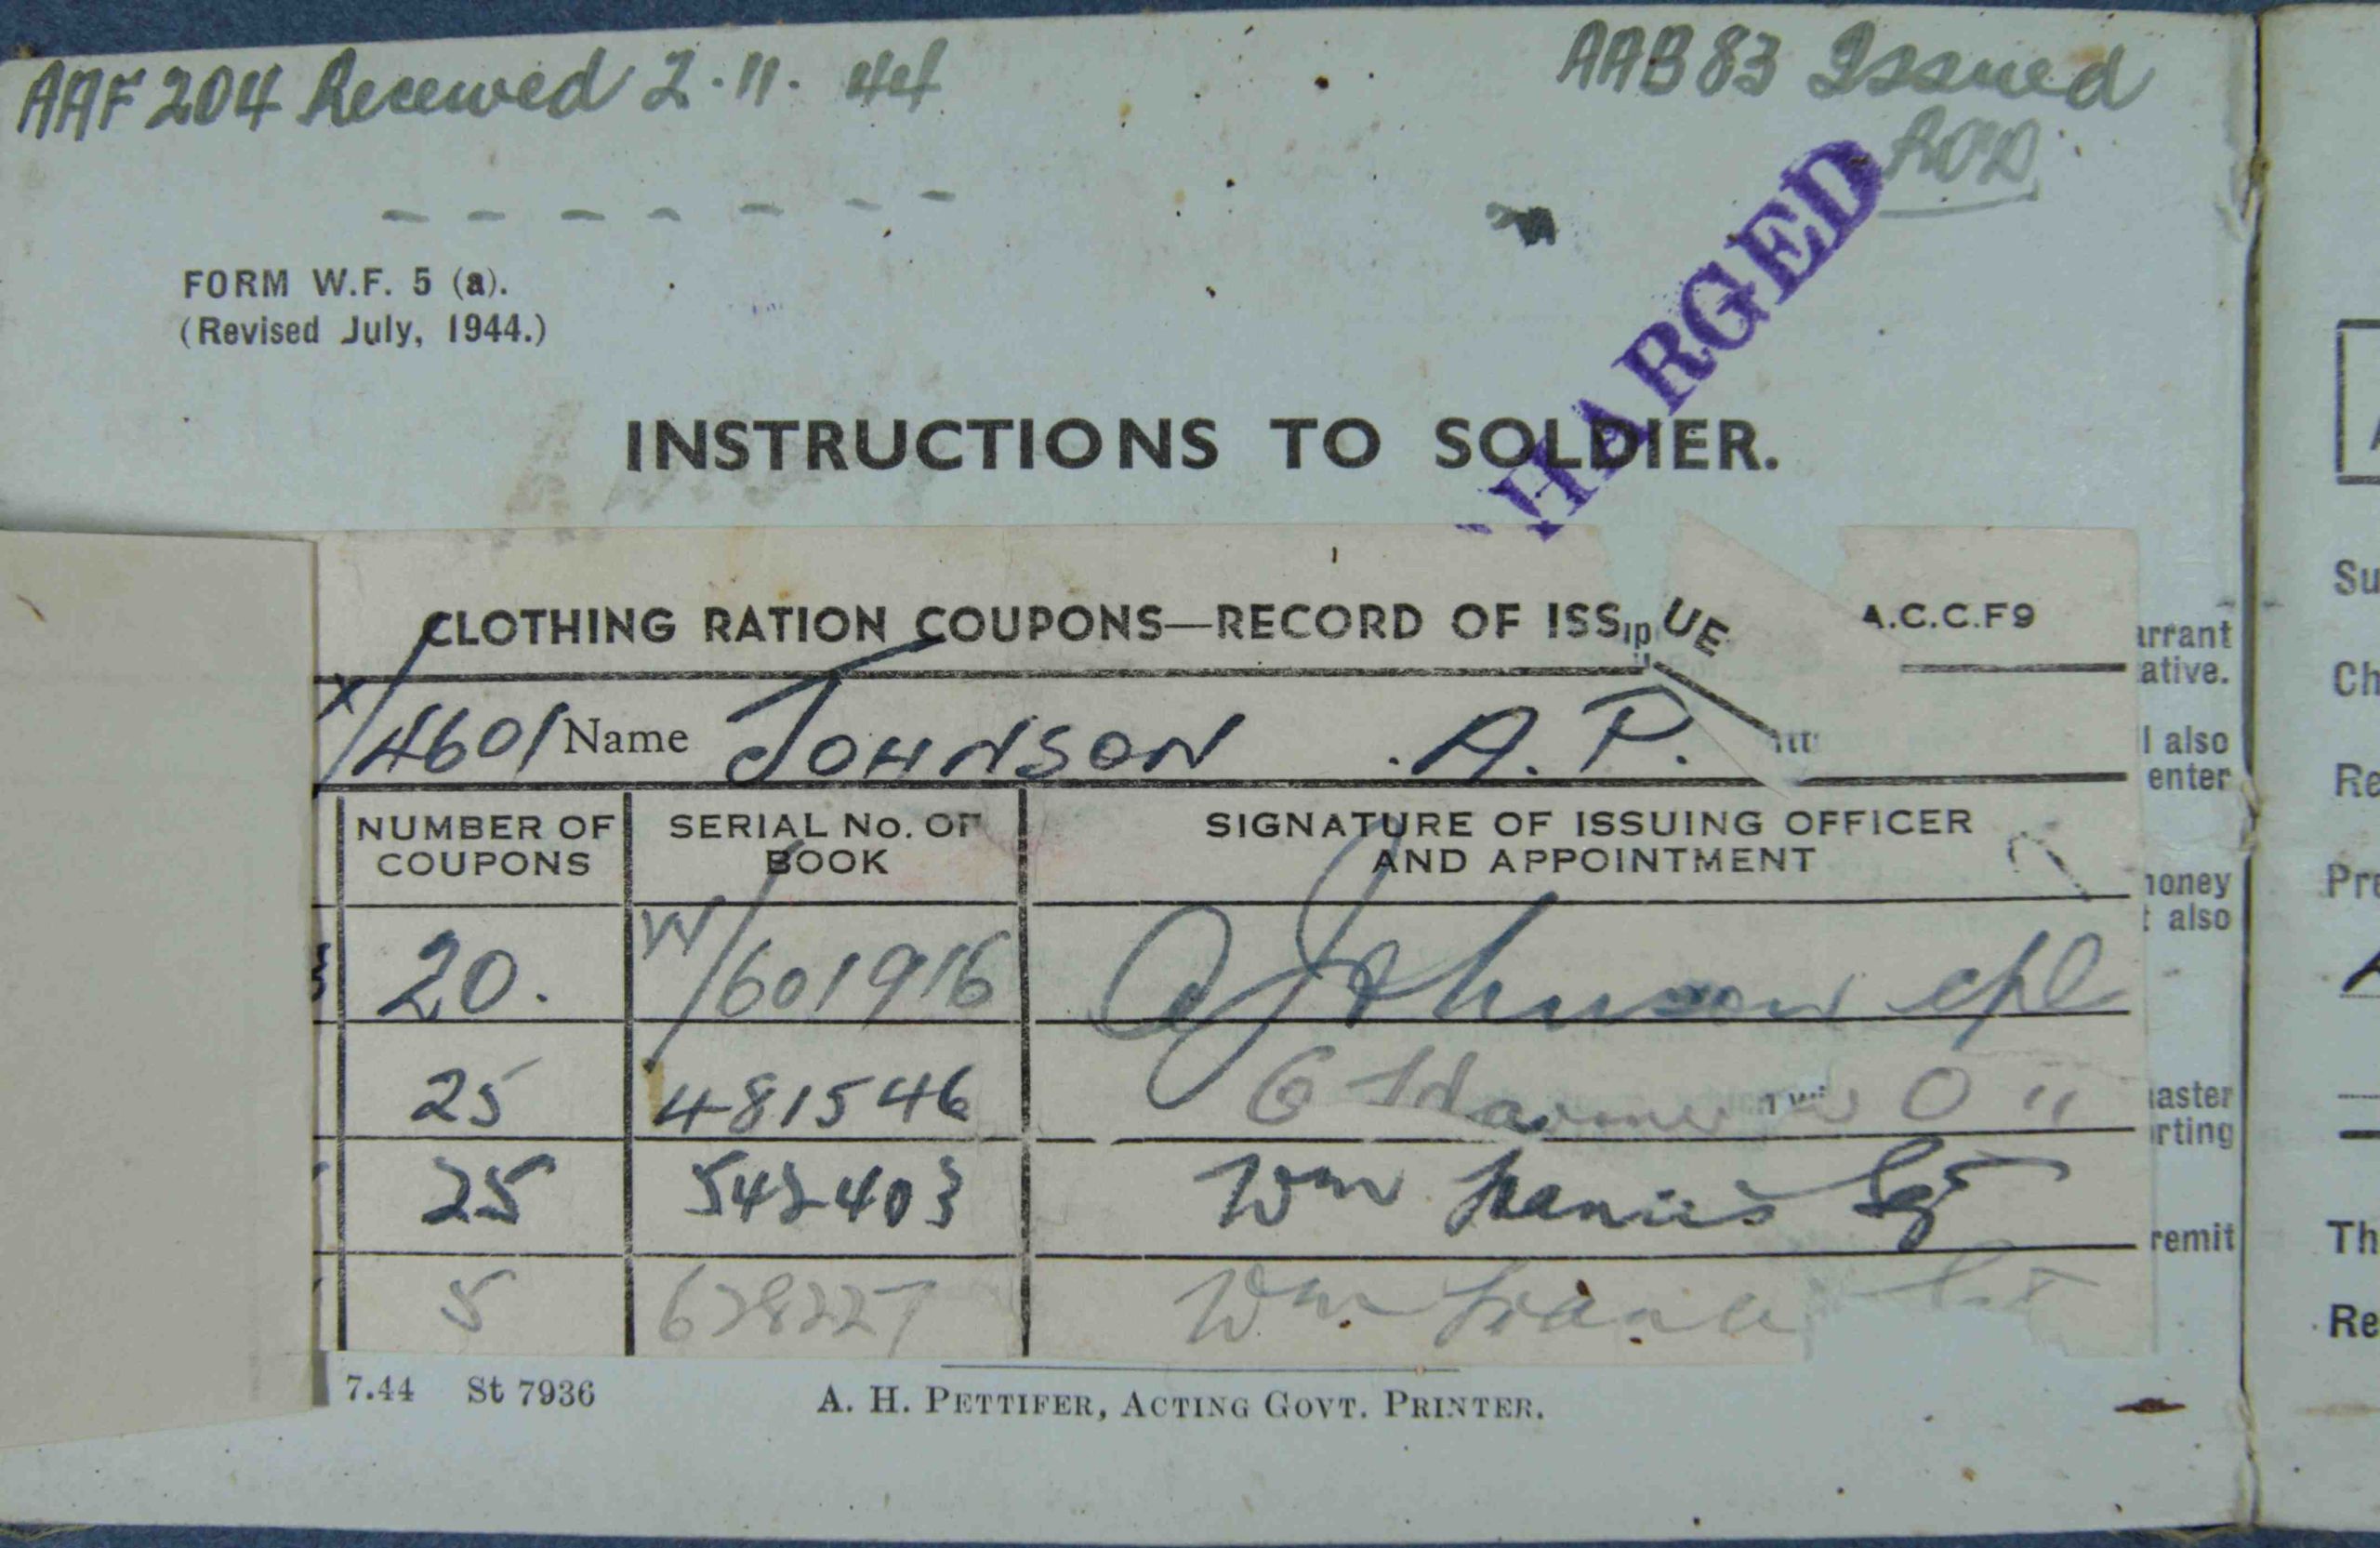 AAF 204 Received 2.11.44
AAB 83 Issued
FORM W.F. 5 (a).
(Revised July, 1944.)
HARGED
INSTRUCTIONS TO SOLDIER.
CLOTHING RATION COUPONS—RECORD OF ISSUE
A.C.C.F9
X/4601 Name JOHNSON A.P.
NUMBER OF COUPONS
SERIAL No. OF BOOK
SIGNATURE OF ISSUING OFFICER AND APPOINTMENT
20. W/601916 Johnson cpl
25 481546
25 542403 Wm Sgt
5 628227 Wm
arrant
ative.
l also
enter
money
t also
master
rting
remit
7.44 St 7936
A. H. PETTIFER, ACTING GOVT. PRINTER.
Su
Ch
Re
Pre
Th
Re